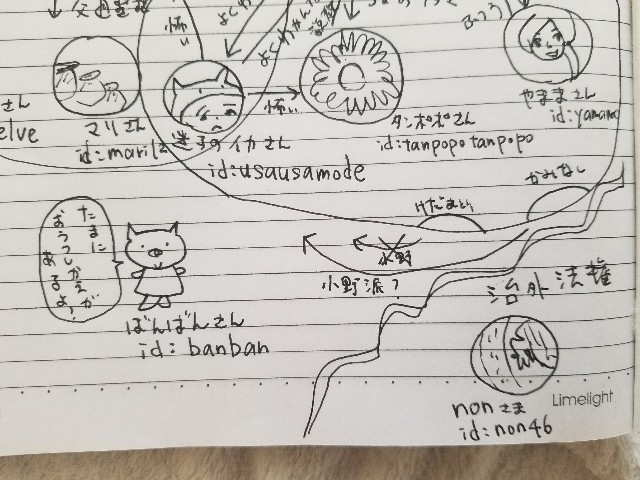 怖い
ふつう
さん
elve
マリさん
id:maril2
迷子のイカさん
id:usausamode
怖い
タンポポさん
id:tanpopotanpopo
やままさん
id:yamama
かみなし
けだまとり
水野
小野派?
治外法権
たまに
おうつしかえが
あるよ!
ばんばんさん
id:banban
nonさま
id:non46
Limelight